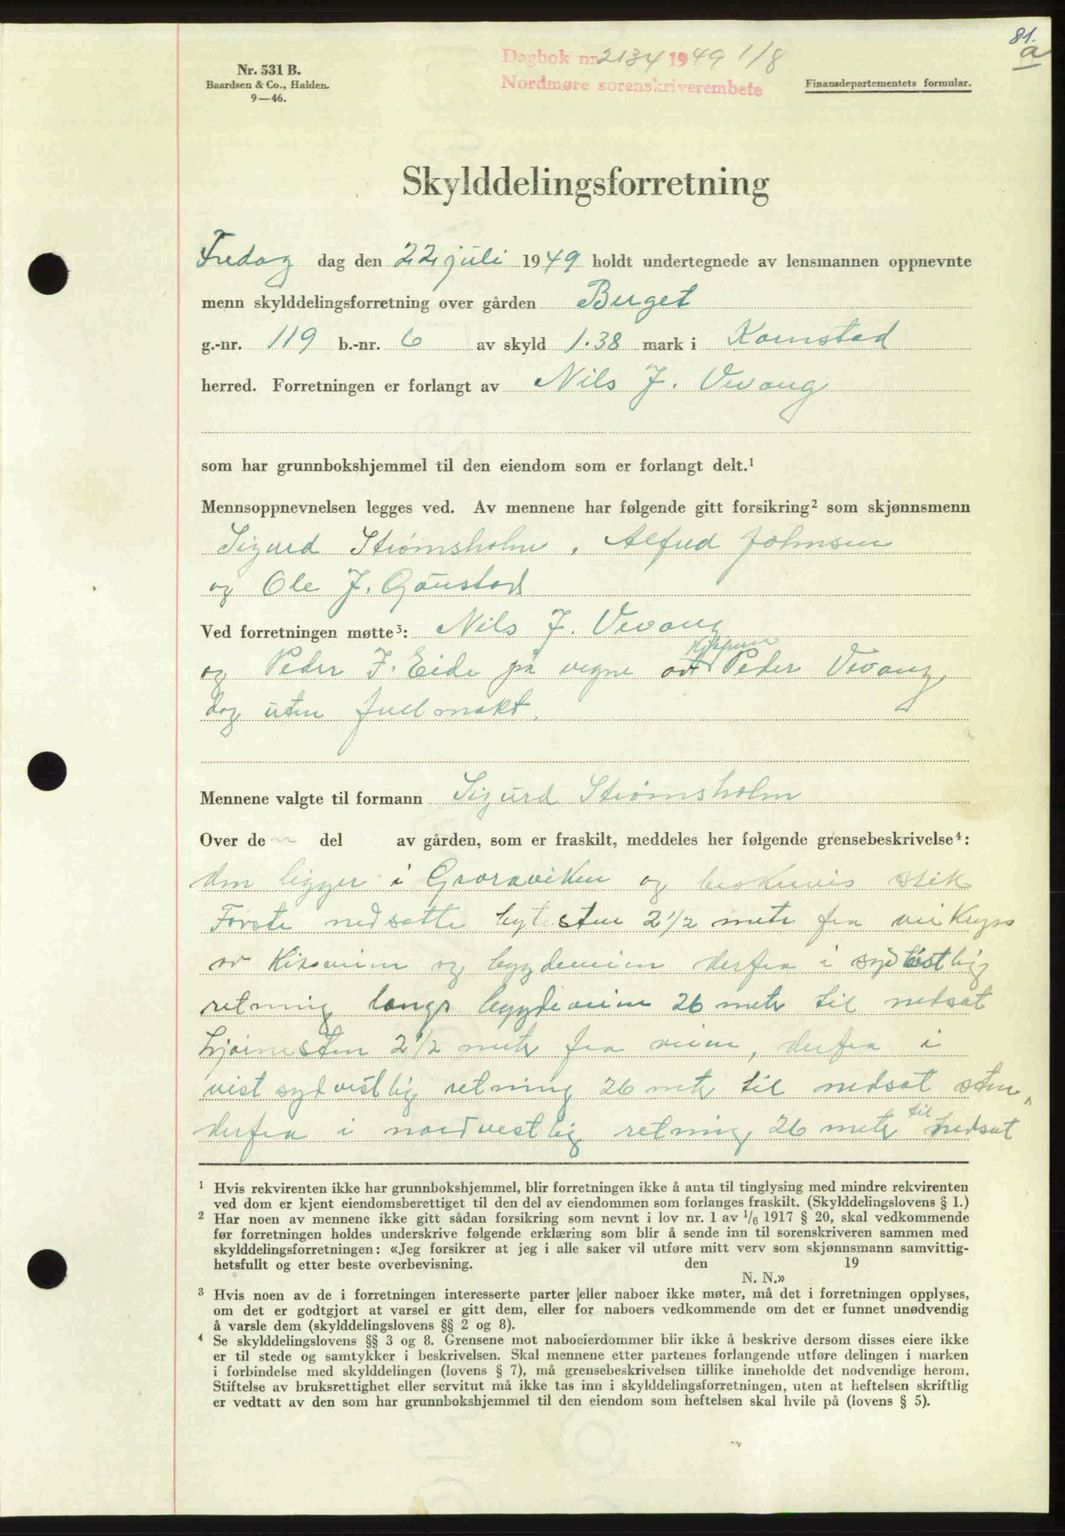 81.
a
Dagbok nr. 2134 1949 1/8
Nordmøre sorenskriverembete
Nr. 531 B.
Baardsen & Co., Halden.
9—46.
Finansdepartementets formular.
Skylddelingsforretning
Fredag dag den 22 juli 1949 holdt undertegnede av lensmannen oppnevnte
menn skylddelingsforretning over gården Berget
g.-nr. 119 b.-nr. 6 av skyld 1.38 mark i Kornstad
herred. Forretningen er forlangt av Nils J. Vevang
som har grunnbokshjemmel til den eiendom som er forlangt delt.¹
Mennsoppnevnelsen legges ved. Av mennene har følgende gitt forsikring² som skjønnsmenn
Sigurd Strømsholm, Alfred Johnsen
og Ole J. Gaustad
Ved forretningen møtte³: Nils J. Vevang
og Peder J. Eide på vegne av kjøperen Peder Vevang
dog uten fullmakt.
Mennene valgte til formann Sigurd Strømsholm
Over den del av gården, som er fraskilt, meddeles her følgende grensebeskrivelse⁴:
den ligger i og beskrives slik
Første nedsatte bytesten 2 1/2 meter fra vei Kryss
av og bygdeveien derfra i sydøstlig
retning langs bygdeveien 26 meter til nedsat
hjørnesten 2 1/2 meter fra veien, derfra i
vest sydvestlig retning 26 meter til nedsat sten,
derfra i nordvestlig retning 26 meter til nedsat
¹ Hvis rekvirenten ikke har grunnbokshjemmel, blir forretningen ikke å anta til tinglysing med mindre rekvirenten
ved dom er kjent eiendomsberettiget til den del av eiendommen som forlanges fraskilt. (Skylddelingslovens § 1.)
² Har noen av mennene ikke gitt sådan forsikring som nevnt i lov nr. 1 av 1/6 1917 § 20, skal vedkommende
før forretningen holdes underskrive følgende erklæring som blir å sende inn til sorenskriveren sammen med
skylddelingsforretningen: «Jeg forsikrer at jeg i alle saker vil utføre mitt verv som skjønnsmann samvittig-
hetsfullt og etter beste overbevisning. den 19
N. N.»
³ Hvis noen av de i forretningen interesserte parter eller naboer ikke møter, må det i forretningen opplyses,
om det er godtgjort at varsel er gitt dem, eller for naboers vedkommende om det er funnet unødvendig
å varsle dem (skylddelingslovens §§ 2 og 8).
⁴ Se skylddelingslovens §§ 3 og 8. Grensene mot naboeierdommer blir ikke å beskrive dersom disses eiere ikke
er til stede og samtykker i beskrivelsen. Skal mennene etter partenes forlangende utføre delingen i marken
i forbindelse med skylddelingen (lovens § 7), må grensebeskrivelsen tillike inneholde det nødvendige herom.
Stiftelse av bruksrettighet eller servitut må ikke tas inn i skylddelingsforretningen, uten at heftelsen skriftlig
er vedtatt av den som har grunnbokshjemmel til den eiendom som heftelsen skal hvile på (lovens § 5).